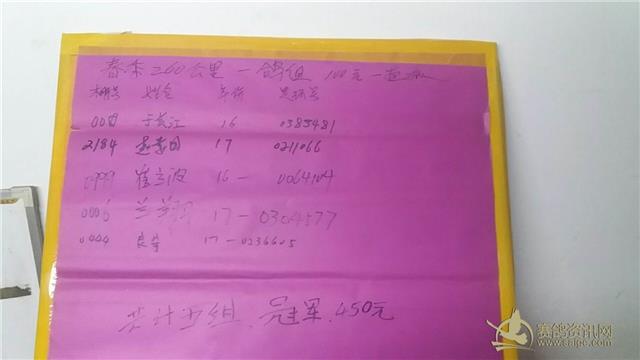 春季260公里一鸽组 100元一
棚号 姓名 年份 足环号
于长江 16 0385481
2184 17 0211066
0999 崔 16- 0064104
0006 兰翔 17-0304577
0044 17-0236605
共计 组、冠军.450元
赛鸽资讯网
www.saige.com